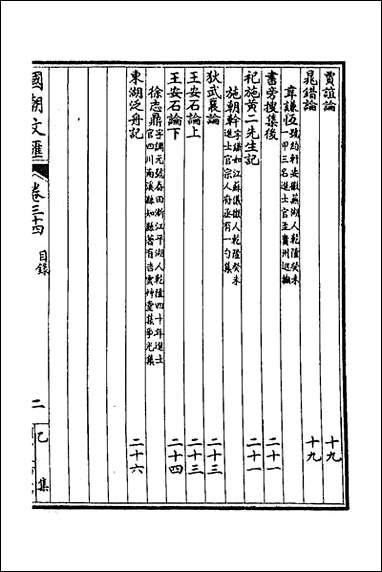 賈誼論 十九
晁錯論 十九
韋謙恆 號約軒安徽蕪湖人乾隆癸未
一甲三名進士官至貴州巡撫
書旁搜集後 二十一
祀施黃二先生記 二十一
施朝幹 字鐵如江蘇儀徵人乾隆癸未
進士官宗人府丞有一勺集
狄武襄論 二十三
王安石論上 二十三
王安石論下 二十四
徐志鼎 字調元號春田浙江平湖人乾隆四十年進士
官四川南溪縣知縣著有吉雲艸堂集學光集
東湖泛舟記 二十六
國朝文匯 卷三十四 目錄 二 乙集